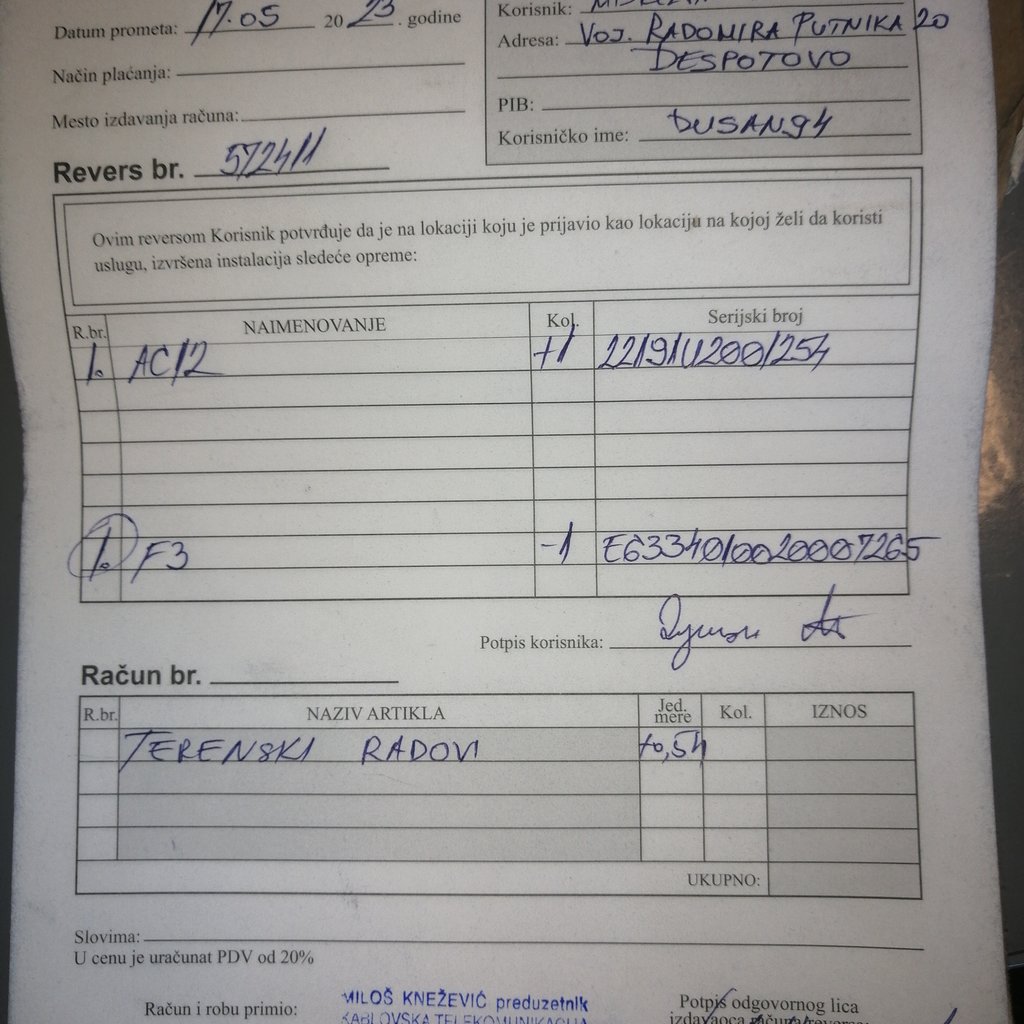 Datum prometa: 17.05 2023. godine
Način plaćanja:
Mesto izdavanja računa:
Korisnik:
Adresa: VOJ. RADOMIRA PUTNIKA 20
DESPOTOVO
PIB:
Korisničko ime: DUSAN94
Revers br. 5724/1
Ovim reversom Korisnik potvrđuje da je na lokaciji koju je prijavio kao lokaciju na kojoj želi da koristi
uslugu, izvršena instalacija sledeće opreme:
R.br. NAIMENOVANJE Kol. Serijski broj
1. AC12 +1
1. F3 -1 E6334010020007265
Potpis korisnika:
Račun br.
R.br. NAZIV ARTIKLA Jed. mere Kol. IZNOS
TERENSKI RADOVI
UKUPNO:
Slovima:
U cenu je uračunat PDV od 20%
Račun i robu primio:
MILOŠ KNEŽEVIĆ preduzetnik
KABLOVSKA TELEKOMUNIKACIJA
Potpis odgovornog lica
izdavaoca računa/reversa: